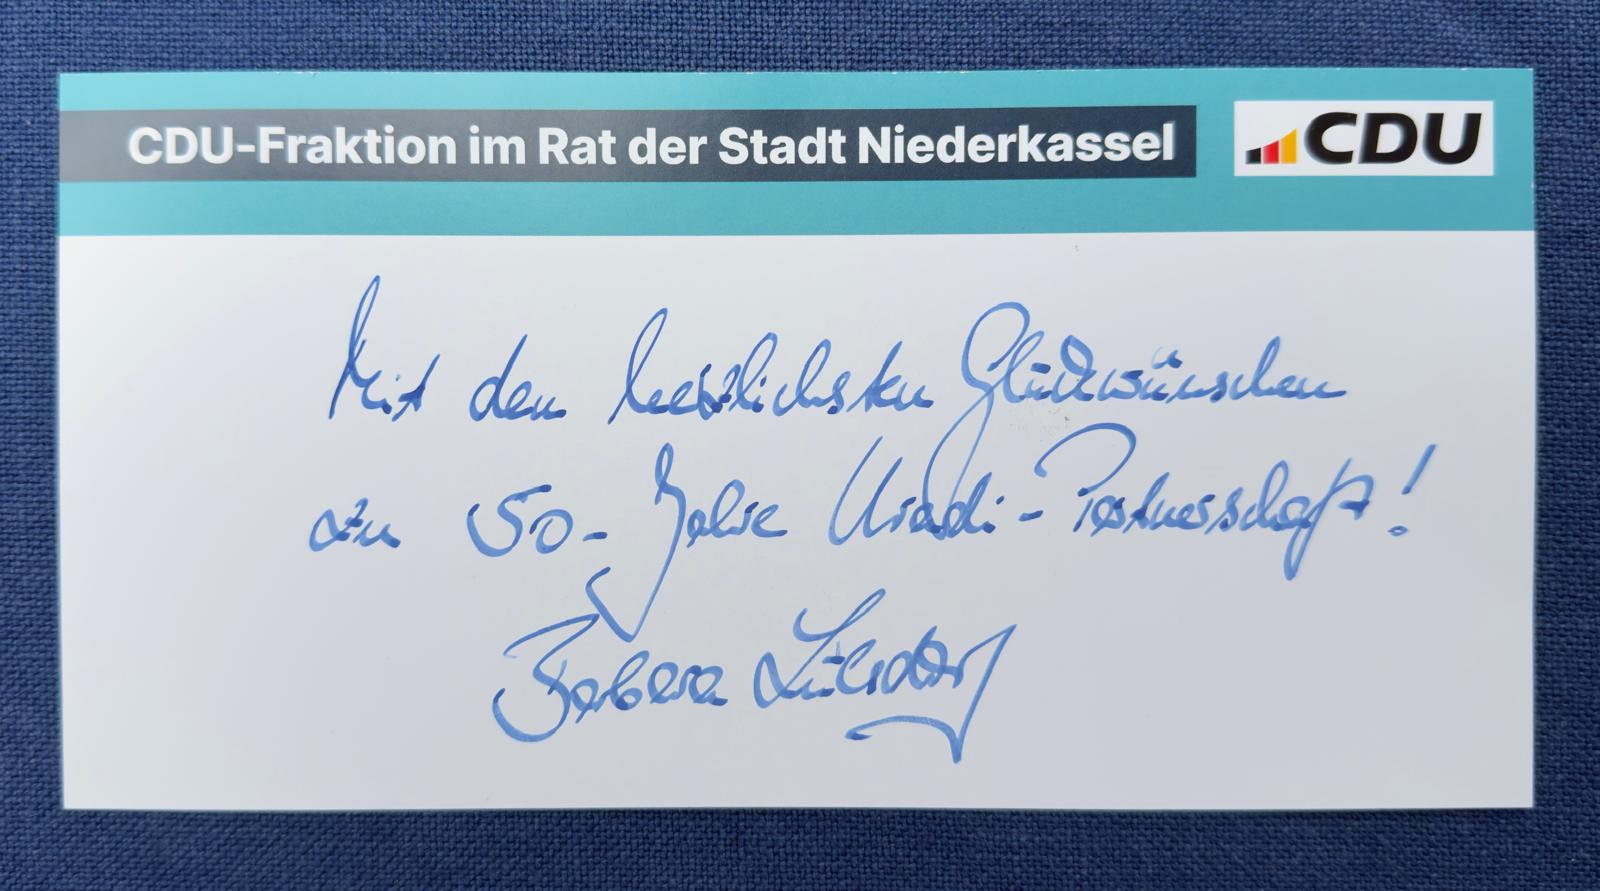 CDU-Fraktion im Rat der Stadt Niederkassel
CDU
Mit den herzlichsten Glückwünschen
zu 50-Jahre Uradi-Partnerschaft!
Barbara Lülsdorf